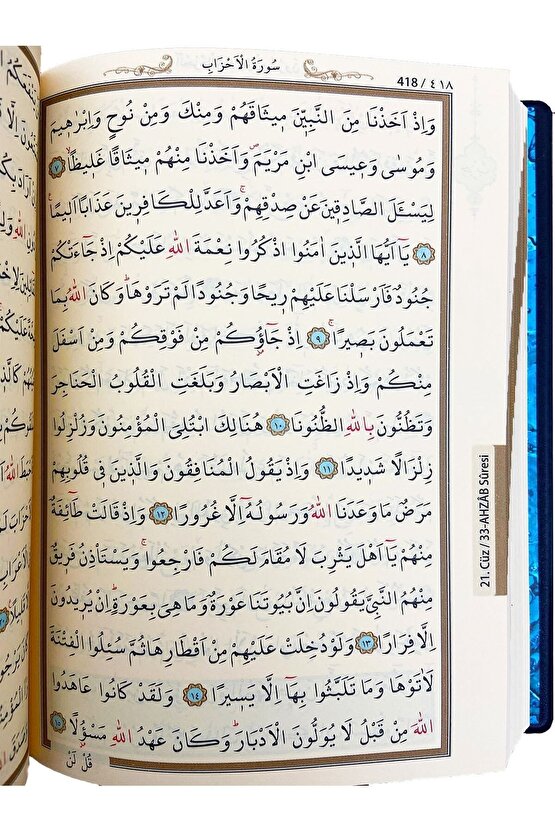 سُورَةُ الْاَحْزَابِ
418 / ٤١٨
وَاِذْ اَخَذْنَا مِنَ النَّبِيّ۪نَ م۪يثَاقَهُمْ وَمِنْكَ وَمِنْ نُوحٍ وَاِبْرٰه۪يمَ
وَمُوسٰى وَع۪يسَى ابْنِ مَرْيَمَۖ وَاَخَذْنَا مِنْهُمْ م۪يثَاقًا غَل۪يظًاۙ ٧
لِيَسْـَٔلَ الصَّادِق۪ينَ عَنْ صِدْقِهِمْۚ وَاَعَدَّ لِلْكَافِر۪ينَ عَذَابًا اَل۪يمًا۟
٨ يَٓا اَيُّهَا الَّذ۪ينَ اٰمَنُوا اذْكُرُوا نِعْمَةَ اللّٰهِ عَلَيْكُمْ اِذْ جَٓاءَتْكُمْ
جُنُودٌ فَاَرْسَلْنَا عَلَيْهِمْ ر۪يحًا وَجُنُودًا لَمْ تَرَوْهَاۜ وَكَانَ اللّٰهُ بِمَا
تَعْمَلُونَ بَص۪يرًاۚ ٩ اِذْ جَٓاؤُ۫كُمْ مِنْ فَوْقِكُمْ وَمِنْ اَسْفَلَ
مِنْكُمْ وَاِذْ زَاغَتِ الْاَبْصَارُ وَبَلَغَتِ الْقُلُوبُ الْحَنَاجِرَ
وَتَظُنُّونَ بِاللّٰهِ الظُّنُونَا ١٠ هُنَالِكَ ابْتُلِيَ الْمُؤْمِنُونَ وَزُلْزِلُوا
زِلْزَالًا شَد۪يدًا ١١ وَاِذْ يَقُولُ الْمُنَافِقُونَ وَالَّذ۪ينَ ف۪ي قُلُوبِهِمْ
مَرَضٌ مَا وَعَدَنَا اللّٰهُ وَرَسُولُهُٓ اِلَّا غُرُورًا ١٢ وَاِذْ قَالَتْ طَٓائِفَةٌ
مِنْهُمْ يَٓا اَهْلَ يَثْرِبَ لَا مُقَامَ لَكُمْ فَارْجِعُواۚ وَيَسْتَأْذِنُ فَر۪يقٌ
مِنْهُمُ النَّبِيَّ يَقُولُونَ اِنَّ بُيُوتَنَا عَوْرَةٌ وَمَا هِيَ بِعَوْرَةٍۚ اِنْ يُر۪يدُونَ
اِلَّا فِرَارًا ١٣ وَلَوْ دُخِلَتْ عَلَيْهِمْ مِنْ اَقْطَارِهَا ثُمَّ سُئِلُوا الْفِتْنَةَ
لَاٰتَوْهَا وَمَا تَلَبَّثُوا بِهَٓا اِلَّا يَس۪يرًا ١٤ وَلَقَدْ كَانُوا عَاهَدُوا
اللّٰهَ مِنْ قَبْلُ لَا يُوَلُّونَ الْاَدْبَارَۜ وَكَانَ عَهْدُ اللّٰهِ مَسْؤُ۫لًا ١٥
قُلْ لَنْ
21. Cüz / 33-AHZÂB Sûresi